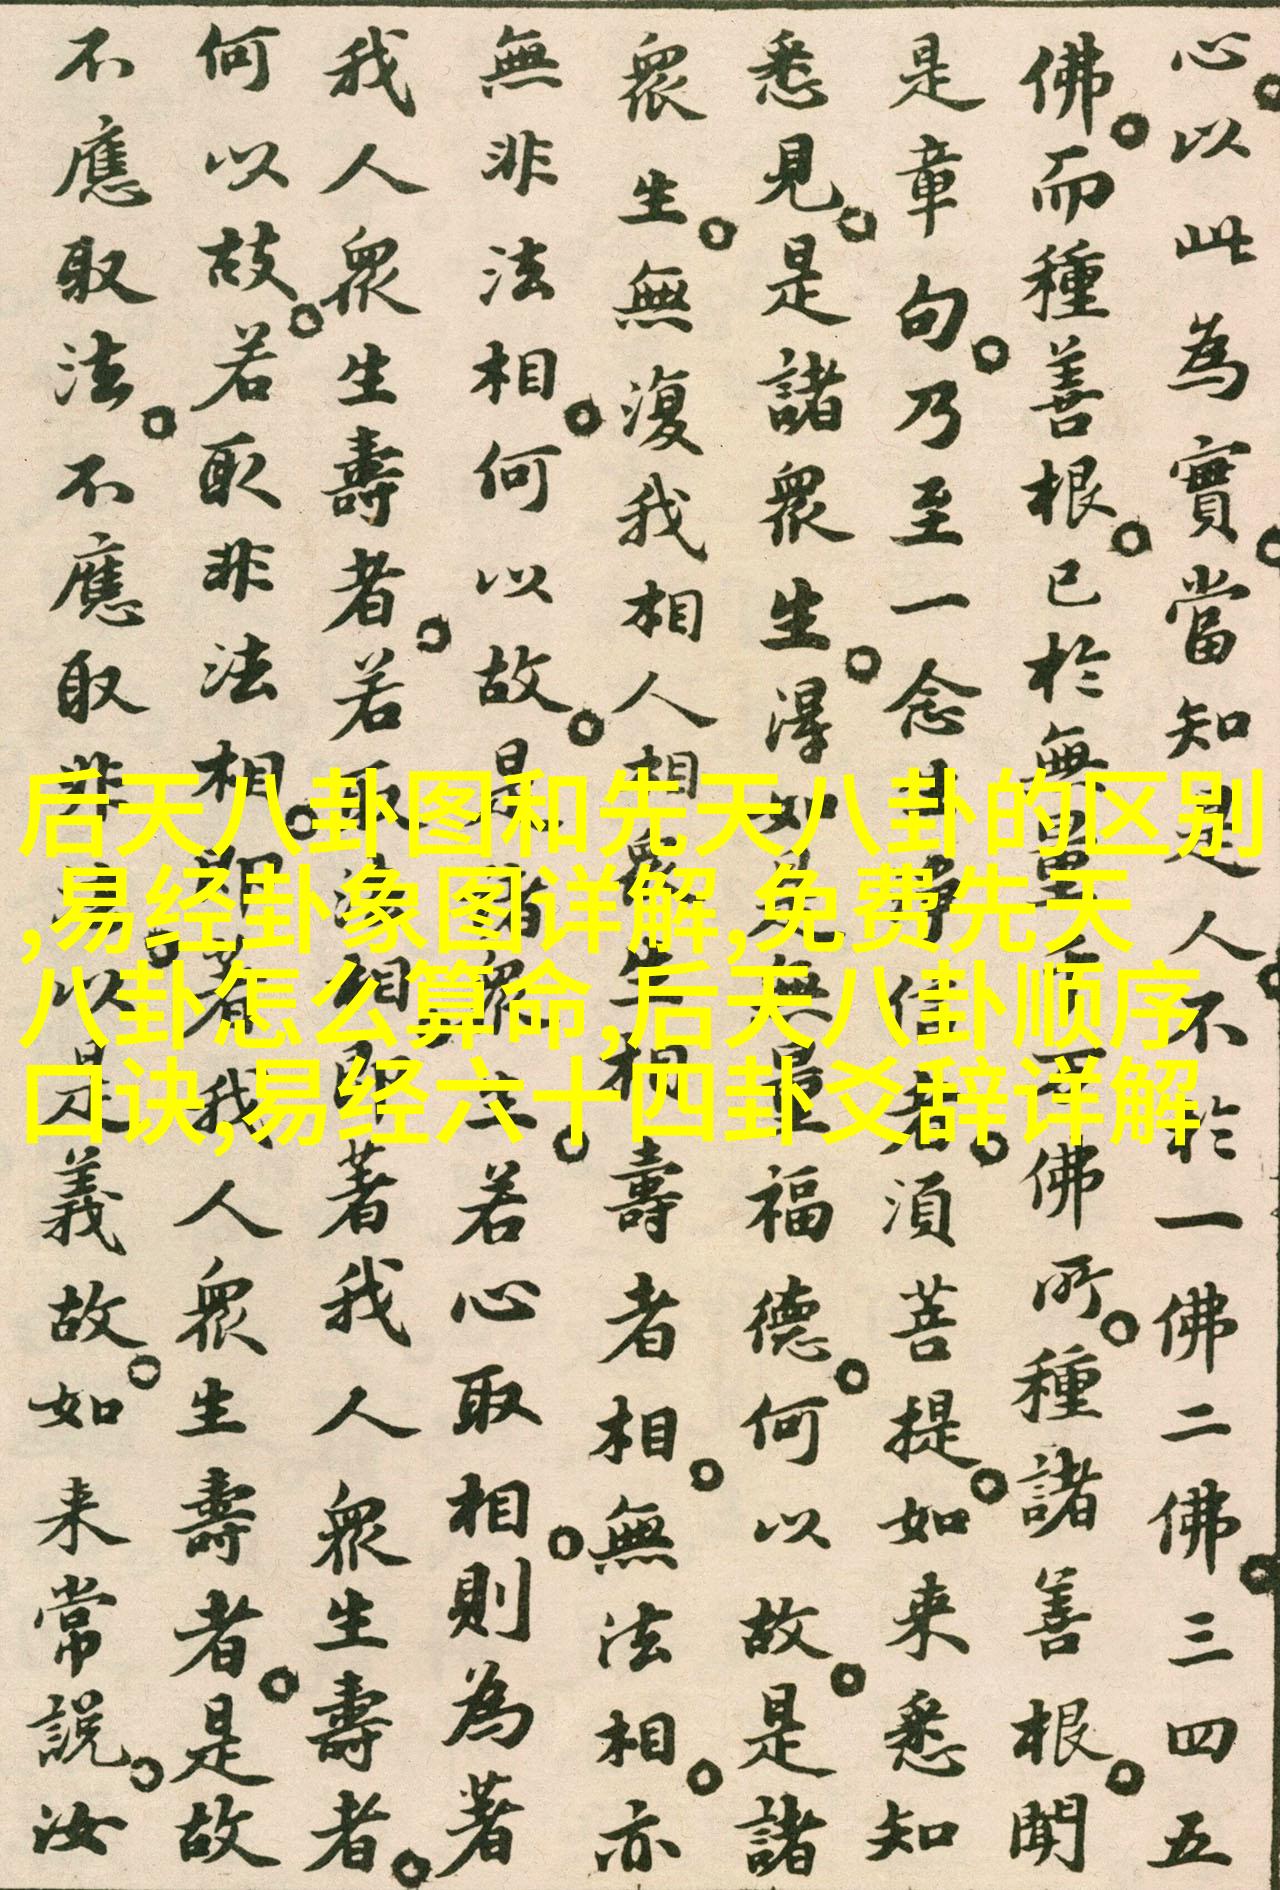 心以此為實當知是人不於一佛二佛三四五
佛而種善根已於無量千万佛所種諸善根聞
是章句乃至一念生淨信者須菩提如来悉知
悉見是諸眾生淂如是無量福德何以故是諸
眾生無復我相人相眾生相壽者相無法相亦
無非法相何以故是諸眾生若心取相則為著
我人眾生壽者若取法相即著我人眾生壽者
何以故若取非法相即著我人眾生壽者是故
不應取法不應取非法以是義故如来常說汝
后天八卦图和先天八卦的区别
,易经卦象图详解,免费先天
八卦怎么算命,后天八卦顺序
口诀,易经六十四卦爻辞详解